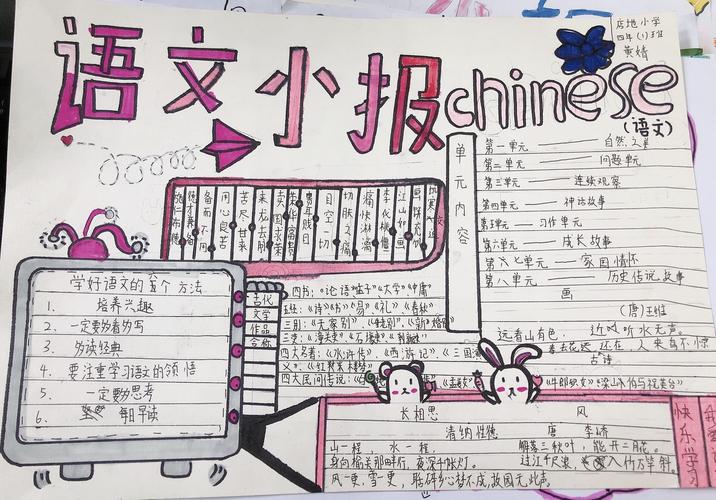 语文小报
chinese
(语文)
店地小学
四年(1)班
黄婧
单元内容
第一单元 自然之美
第二单元 问题单元
第三单元 连续观察
第四单元 神话故事
第五单元 习作单元
第六单元 成长故事
第六七单元 家国情怀
第八单元 历史传说故事
画
(唐)王维
远看山有色, 近听水无声。
春去花还在, 人来鸟不惊
古诗
江山如画
李代桃僵
痛快淋漓
切肤之痛
目空一切
荣华富贵
卖国求荣
来龙去脉
苦尽甘来
用心良苦
备而不用
德才兼备
学好语文的六个方法
1. 培养兴趣
2. 一定要勤看勤写
3. 多读经典
4. 要注重学习语文的领悟
5. 一定要勤思考
6. 坚 每日早读
古代
文学
作品
合称
四书:《论语》《孟子》《大学》《中庸
五经:《诗》《书》《易》《礼》《春秋》
三别:《无家别》《垂老别》《新婚别
三吏:《潼关吏》《石壕吏》
四大名著:《水浒传》《西游记》《三国
义》《红楼梦》
四大民间传说:《白 《孟姜女》《牛郎织女》《梁山伯与祝英台》
长相思
清纳性德
山一程, 水一程,
身向榆关那畔行,夜深千帐灯。
风一更,雪一更, 聒碎乡心梦不成,故园无此声。
风
唐 李峤
解落三秋叶,能开二月花。
过江千尺浪, 入竹万竿斜。
快乐学习